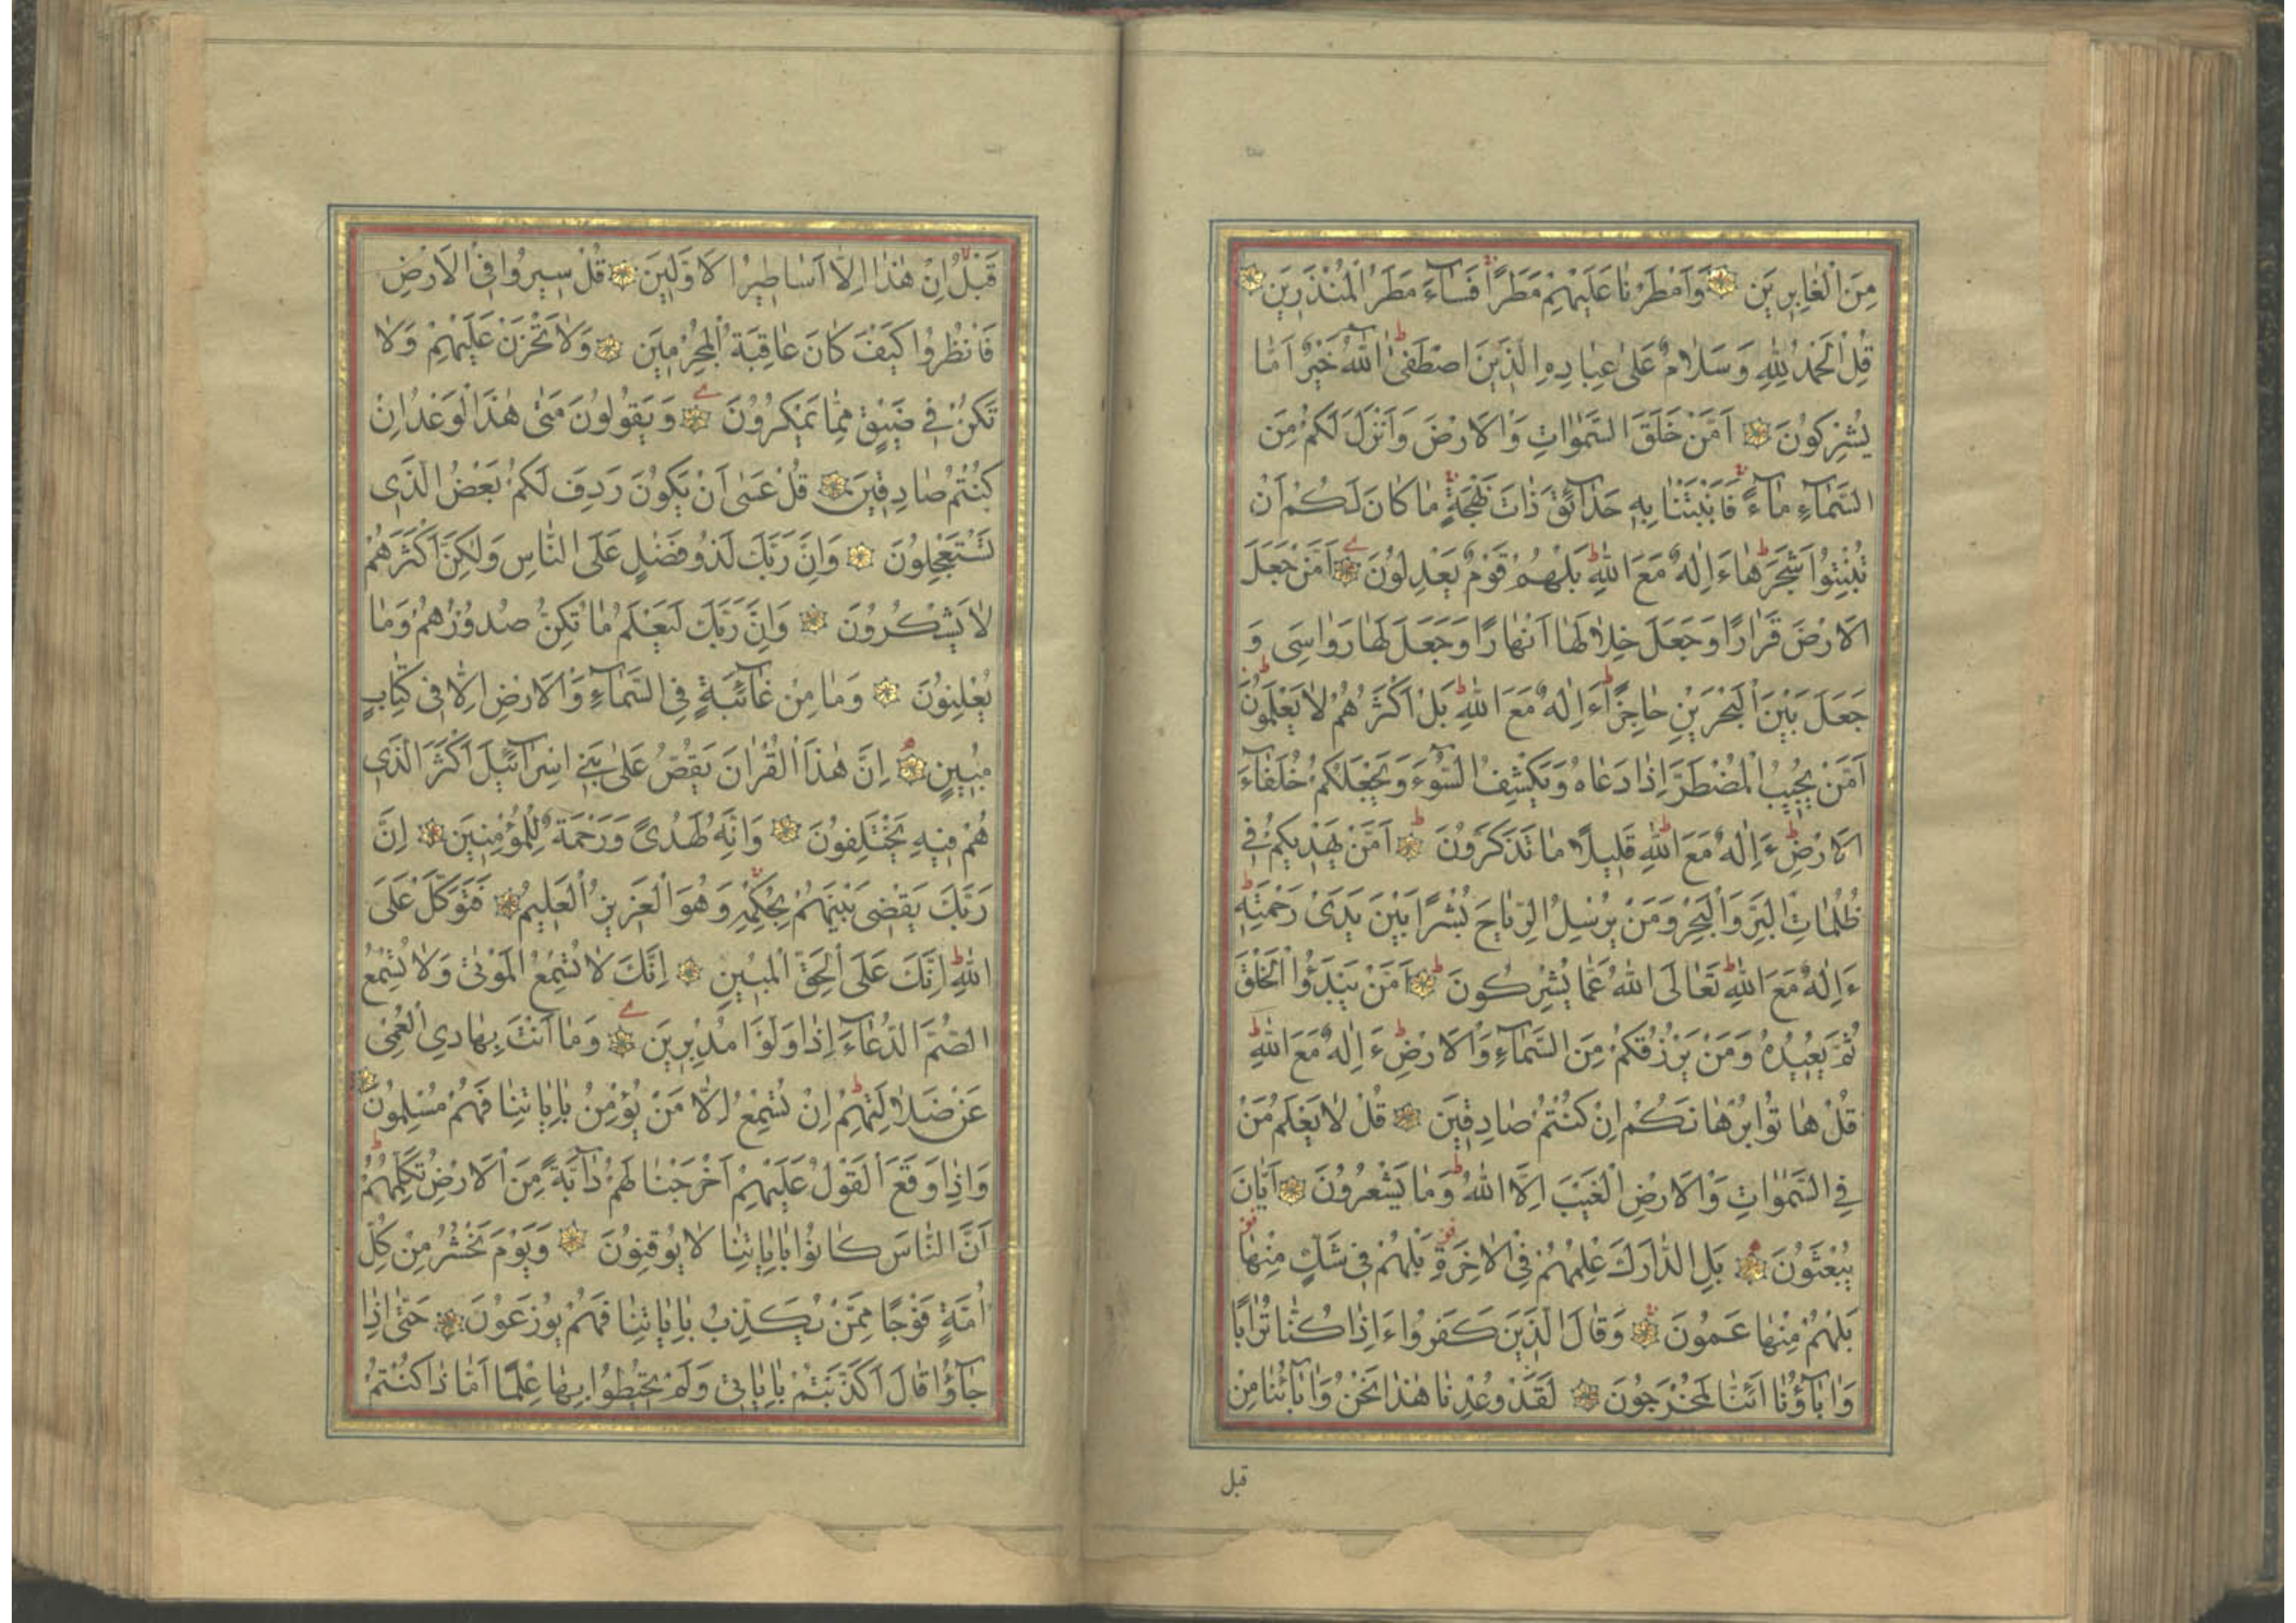 مِنَ الْغَابِرِينَ وَاَمْطَرْنَا عَلَيْهِمْ مَطَرًا فَسَاءَ مَطَرُ الْمُنْذَرِينَ
قُلِ الْحَمْدُ لِلّٰهِ وَسَلَامٌ عَلٰى عِبَادِهِ الَّذِينَ اصْطَفٰى آللّٰهُ خَيْرٌ اَمَّا
يُشْرِكُونَ اَمَّنْ خَلَقَ السَّمٰوَاتِ وَالْاَرْضَ وَاَنْزَلَ لَكُمْ مِنَ
السَّمَاءِ مَاءً فَاَنْبَتْنَا بِهِ حَدَائِقَ ذَاتَ بَهْجَةٍ مَا كَانَ لَكُمْ اَنْ
تُنْبِتُوا شَجَرَهَا ءَاِلٰهٌ مَعَ اللّٰهِ بَلْ هُمْ قَوْمٌ يَعْدِلُونَ اَمَّنْ جَعَلَ
الْاَرْضَ قَرَارًا وَجَعَلَ خِلَالَهَا اَنْهَارًا وَجَعَلَ لَهَا رَوَاسِىَ وَ
جَعَلَ بَيْنَ الْبَحْرَيْنِ حَاجِزًا ءَاِلٰهٌ مَعَ اللّٰهِ بَلْ اَكْثَرُهُمْ لَا يَعْلَمُونَ
اَمَّنْ يُجِيبُ الْمُضْطَرَّ اِذَا دَعَاهُ وَيَكْشِفُ السُّوءَ وَيَجْعَلُكُمْ خُلَفَاءَ
الْاَرْضِ ءَاِلٰهٌ مَعَ اللّٰهِ قَلِيلًا مَا تَذَكَّرُونَ اَمَّنْ يَهْدِيكُمْ فِى
ظُلُمَاتِ الْبَرِّ وَالْبَحْرِ وَمَنْ يُرْسِلُ الرِّيَاحَ بُشْرًا بَيْنَ يَدَىْ رَحْمَتِهِ
ءَاِلٰهٌ مَعَ اللّٰهِ تَعَالَى اللّٰهُ عَمَّا يُشْرِكُونَ اَمَّنْ يَبْدَؤُا الْخَلْقَ
ثُمَّ يُعِيدُهُ وَمَنْ يَرْزُقُكُمْ مِنَ السَّمَاءِ وَالْاَرْضِ ءَاِلٰهٌ مَعَ اللّٰهِ
قُلْ هَاتُوا بُرْهَانَكُمْ اِنْ كُنْتُمْ صَادِقِينَ قُلْ لَا يَعْلَمُ مَنْ
فِى السَّمٰوَاتِ وَالْاَرْضِ الْغَيْبَ اِلَّا اللّٰهُ وَمَا يَشْعُرُونَ اَيَّانَ
يُبْعَثُونَ بَلِ ادَّارَكَ عِلْمُهُمْ فِى الْاٰخِرَةِ بَلْ هُمْ فِى شَكٍّ مِنْهَا
بَلْ هُمْ مِنْهَا عَمُونَ وَقَالَ الَّذِينَ كَفَرُوا ءَاِذَا كُنَّا تُرَابًا
وَاٰبَاؤُنَا اَئِنَّا لَمُخْرَجُونَ لَقَدْ وُعِدْنَا هٰذَا نَحْنُ وَاٰبَاؤُنَا مِنْ
قبل
قَبْلُ اِنْ هٰذَا اِلَّا اَسَاطِيرُ الْاَوَّلِينَ قُلْ سِيرُوا فِى الْاَرْضِ
فَانْظُرُوا كَيْفَ كَانَ عَاقِبَةُ الْمُجْرِمِينَ وَلَا تَحْزَنْ عَلَيْهِمْ وَلَا
تَكُنْ فِى ضَيْقٍ مِمَّا يَمْكُرُونَ وَيَقُولُونَ مَتٰى هٰذَا الْوَعْدُ اِنْ
كُنْتُمْ صَادِقِينَ قُلْ عَسٰى اَنْ يَكُونَ رَدِفَ لَكُمْ بَعْضُ الَّذِى
تَسْتَعْجِلُونَ وَاِنَّ رَبَّكَ لَذُو فَضْلٍ عَلَى النَّاسِ وَلٰكِنَّ اَكْثَرَهُمْ
لَا يَشْكُرُونَ وَاِنَّ رَبَّكَ لَيَعْلَمُ مَا تُكِنُّ صُدُورُهُمْ وَمَا
يُعْلِنُونَ وَمَا مِنْ غَائِبَةٍ فِى السَّمَاءِ وَالْاَرْضِ اِلَّا فِى كِتَابٍ
مُبِينٍ اِنَّ هٰذَا الْقُرْاٰنَ يَقُصُّ عَلٰى بَنِى اِسْرَائِيلَ اَكْثَرَ الَّذِى
هُمْ فِيهِ يَخْتَلِفُونَ وَاِنَّهُ لَهُدًى وَرَحْمَةٌ لِلْمُؤْمِنِينَ اِنَّ
رَبَّكَ يَقْضِى بَيْنَهُمْ بِحُكْمِهِ وَهُوَ الْعَزِيزُ الْعَلِيمُ فَتَوَكَّلْ عَلَى
اللّٰهِ اِنَّكَ عَلَى الْحَقِّ الْمُبِينِ اِنَّكَ لَا تُسْمِعُ الْمَوْتٰى وَلَا تُسْمِعُ
الصُّمَّ الدُّعَاءَ اِذَا وَلَّوْا مُدْبِرِينَ وَمَا اَنْتَ بِهَادِى الْعُمْىِ
عَنْ ضَلَالَتِهِمْ اِنْ تُسْمِعُ اِلَّا مَنْ يُؤْمِنُ بِاٰيَاتِنَا فَهُمْ مُسْلِمُونَ
وَاِذَا وَقَعَ الْقَوْلُ عَلَيْهِمْ اَخْرَجْنَا لَهُمْ دَابَّةً مِنَ الْاَرْضِ تُكَلِّمُهُمْ
اَنَّ النَّاسَ كَانُوا بِاٰيَاتِنَا لَا يُوقِنُونَ وَيَوْمَ نَحْشُرُ مِنْ كُلِّ
اُمَّةٍ فَوْجًا مِمَّنْ يُكَذِّبُ بِاٰيَاتِنَا فَهُمْ يُوزَعُونَ حَتّٰى اِذَا
جَاؤُا قَالَ اَكَذَّبْتُمْ بِاٰيَاتِى وَلَمْ تُحِيطُوا بِهَا عِلْمًا اَمَّا ذَا كُنْتُمْ